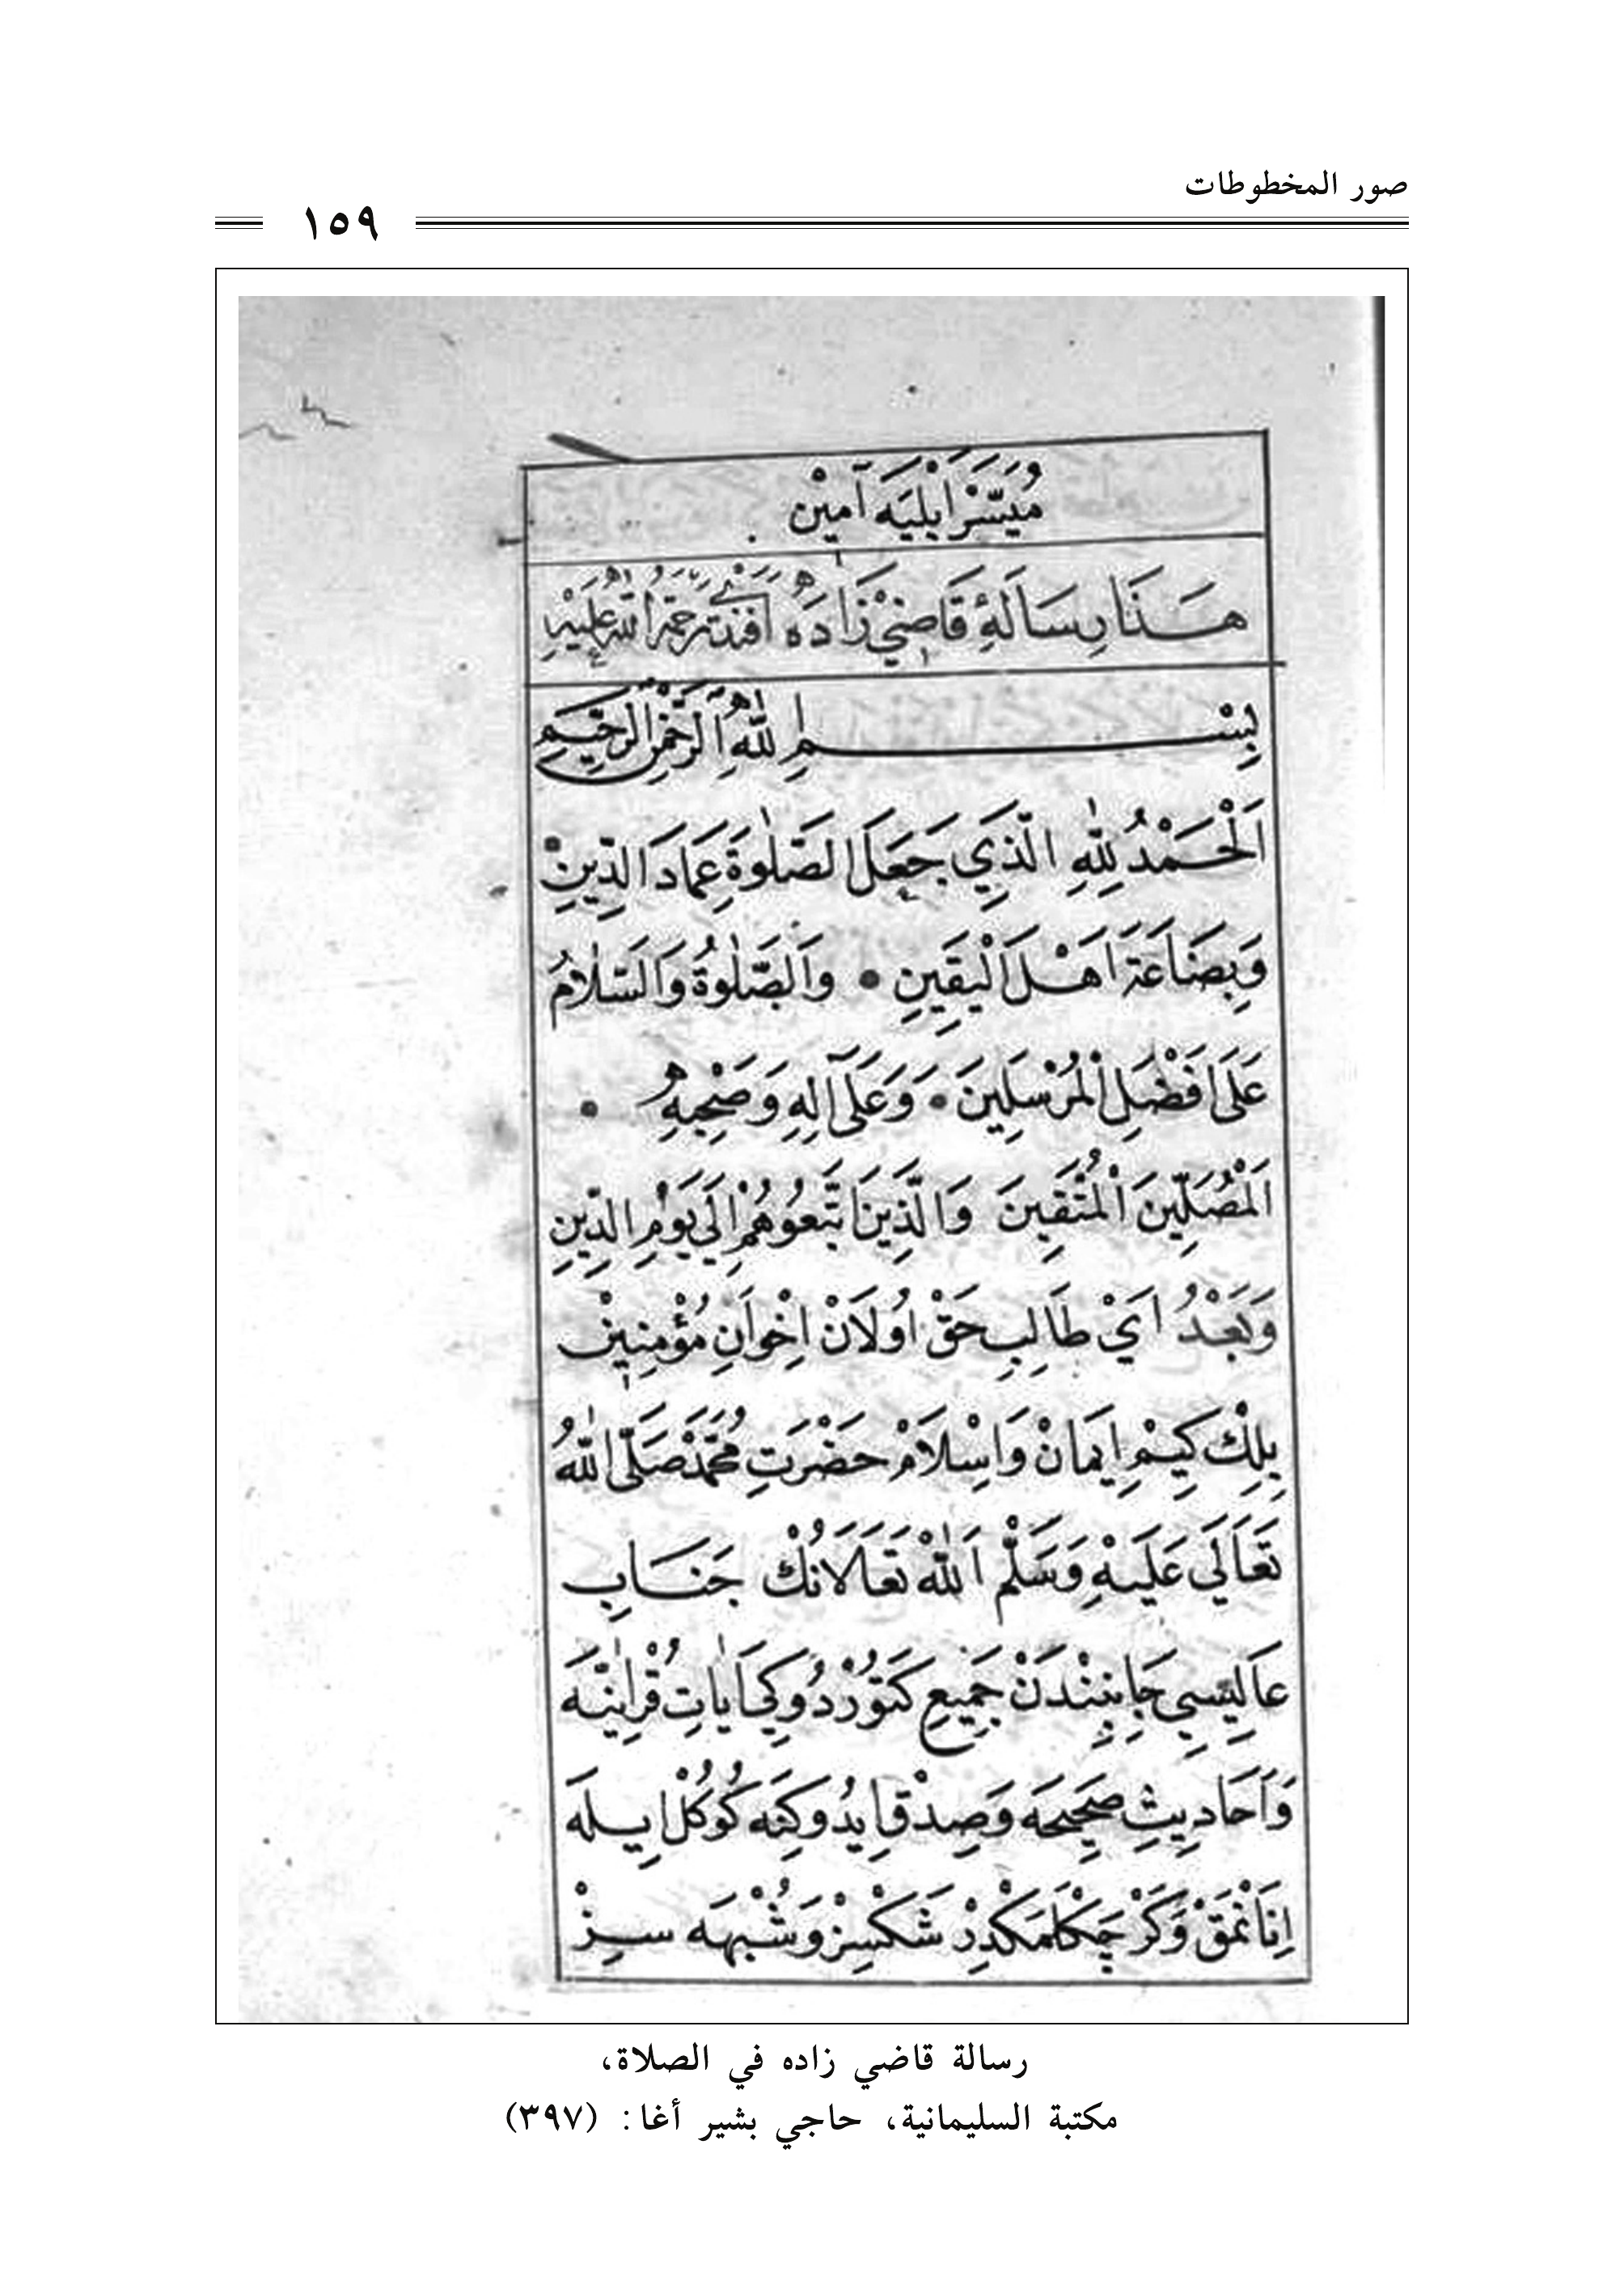 صور المخطوطات
١٥٩
مُيَسَّرْ اَيْلِيَه آمِيْن
هَذَا رِسَالَةِ قَاضِيْ زَادَه اَفَنْدِي رَحْمَةُ اللّٰهِ عَلَيْهِ
بِسْمِ اللّٰهِ الرَّحْمٰنِ الرَّحِيمِ
اَلْحَمْدُ لِلّٰهِ الَّذِي جَعَلَ الصَّلٰوةَ عِمَادَ الدِّينِ
وَبِضَاعَةَ اَهْلِ الْيَقِينِ • وَالصَّلٰوةُ وَالسَّلَامُ
عَلَى اَفْضَلِ الْمُرْسَلِينَ • وَعَلَى اٰلِهِ وَصَحْبِهِ •
الْمُصَلِّينَ الْمُتَّقِينَ وَالَّذِينَ اتَّبَعُوهُمْ اِلَى يَوْمِ الدِّينِ
وَبَعْدُ اَيْ طَالِبِ حَقْ اُولَانْ اِخْوَانِ مُؤْمِنِينْ
بِلِكْ كِيمْ اِيمَانْ وَاِسْلَامْ حَضْرَتِ مُحَمَّدْ صَلَّى اللّٰهُ
تَعَالَى عَلَيْهِ وَسَلَّمْ اَللّٰهْ تَعَالَانُكْ جَنَابِ
عَالِيسِي جَانِبِنْدَنْ جَمِيعِ كَتُورْدُوكِي اٰيَاتِ قُرْاٰنِيَّه
وَاَحَادِيثِ صَحِيحَه وَصِدْق اِيدُوكِنَه كُوكُلْ اِيلَه
اِنَانْمَقْ وَكَرْچَكْلَمَكْدِرْ شَكْسِزْ وَشُبْهَه سِزْ
رسالة قاضي زاده في الصلاة،
مكتبة السليمانية، حاجي بشير أغا: (٣٩٧)